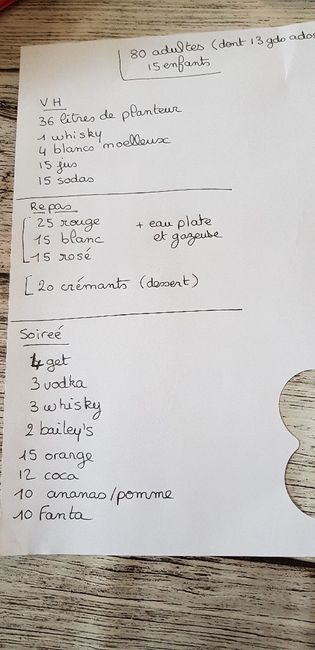 80 adultes (dont 13 gds ados
15 enfants
VH
36 litres de planteur
1 whisky
4 blancs moelleux
15 jus
15 sodas
Repas
25 rouge + eau plate
15 blanc et gazeuse
15 rosé
20 crémants (dessert)
Soireé
4 get
3 vodka
3 whisky
2 bailey's
15 orange
12 coca
10 ananas/pomme
10 Fanta